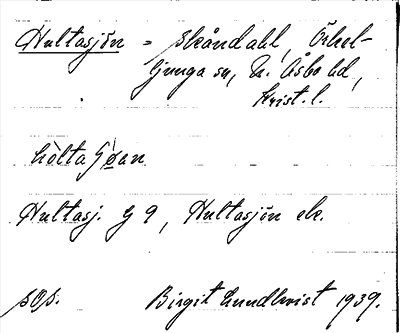 Hultasjön = skåndahl, Örkel-
ljunga sn, N. Åsbo hd,
Krist. l.
hòlta ʃøan
Hultasj. G 9, Hultasjön ek.
sOp. Birgit Lundkvist 1939.